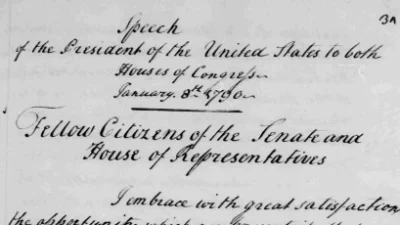 3a
Speech
of the President of the United States to both
Houses of Congress
January. 8th 1790
Fellow Citizens of the Senate and
House of Representatives
I embrace with great satisfaction
the opportunity which